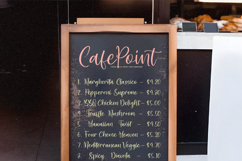 CafePoint
1. Margherita Classico - $9.20
2. Pepperoni Supreme - $8.50
3. BBQ Chicken Delight - $5.00
4. Truffle Mushroom - $
5. Hawaiian Twist - $
6. Four Cheese Heaven - $5.20
7. Mediterranean Veggie - $
8. Spicy Diavola - $